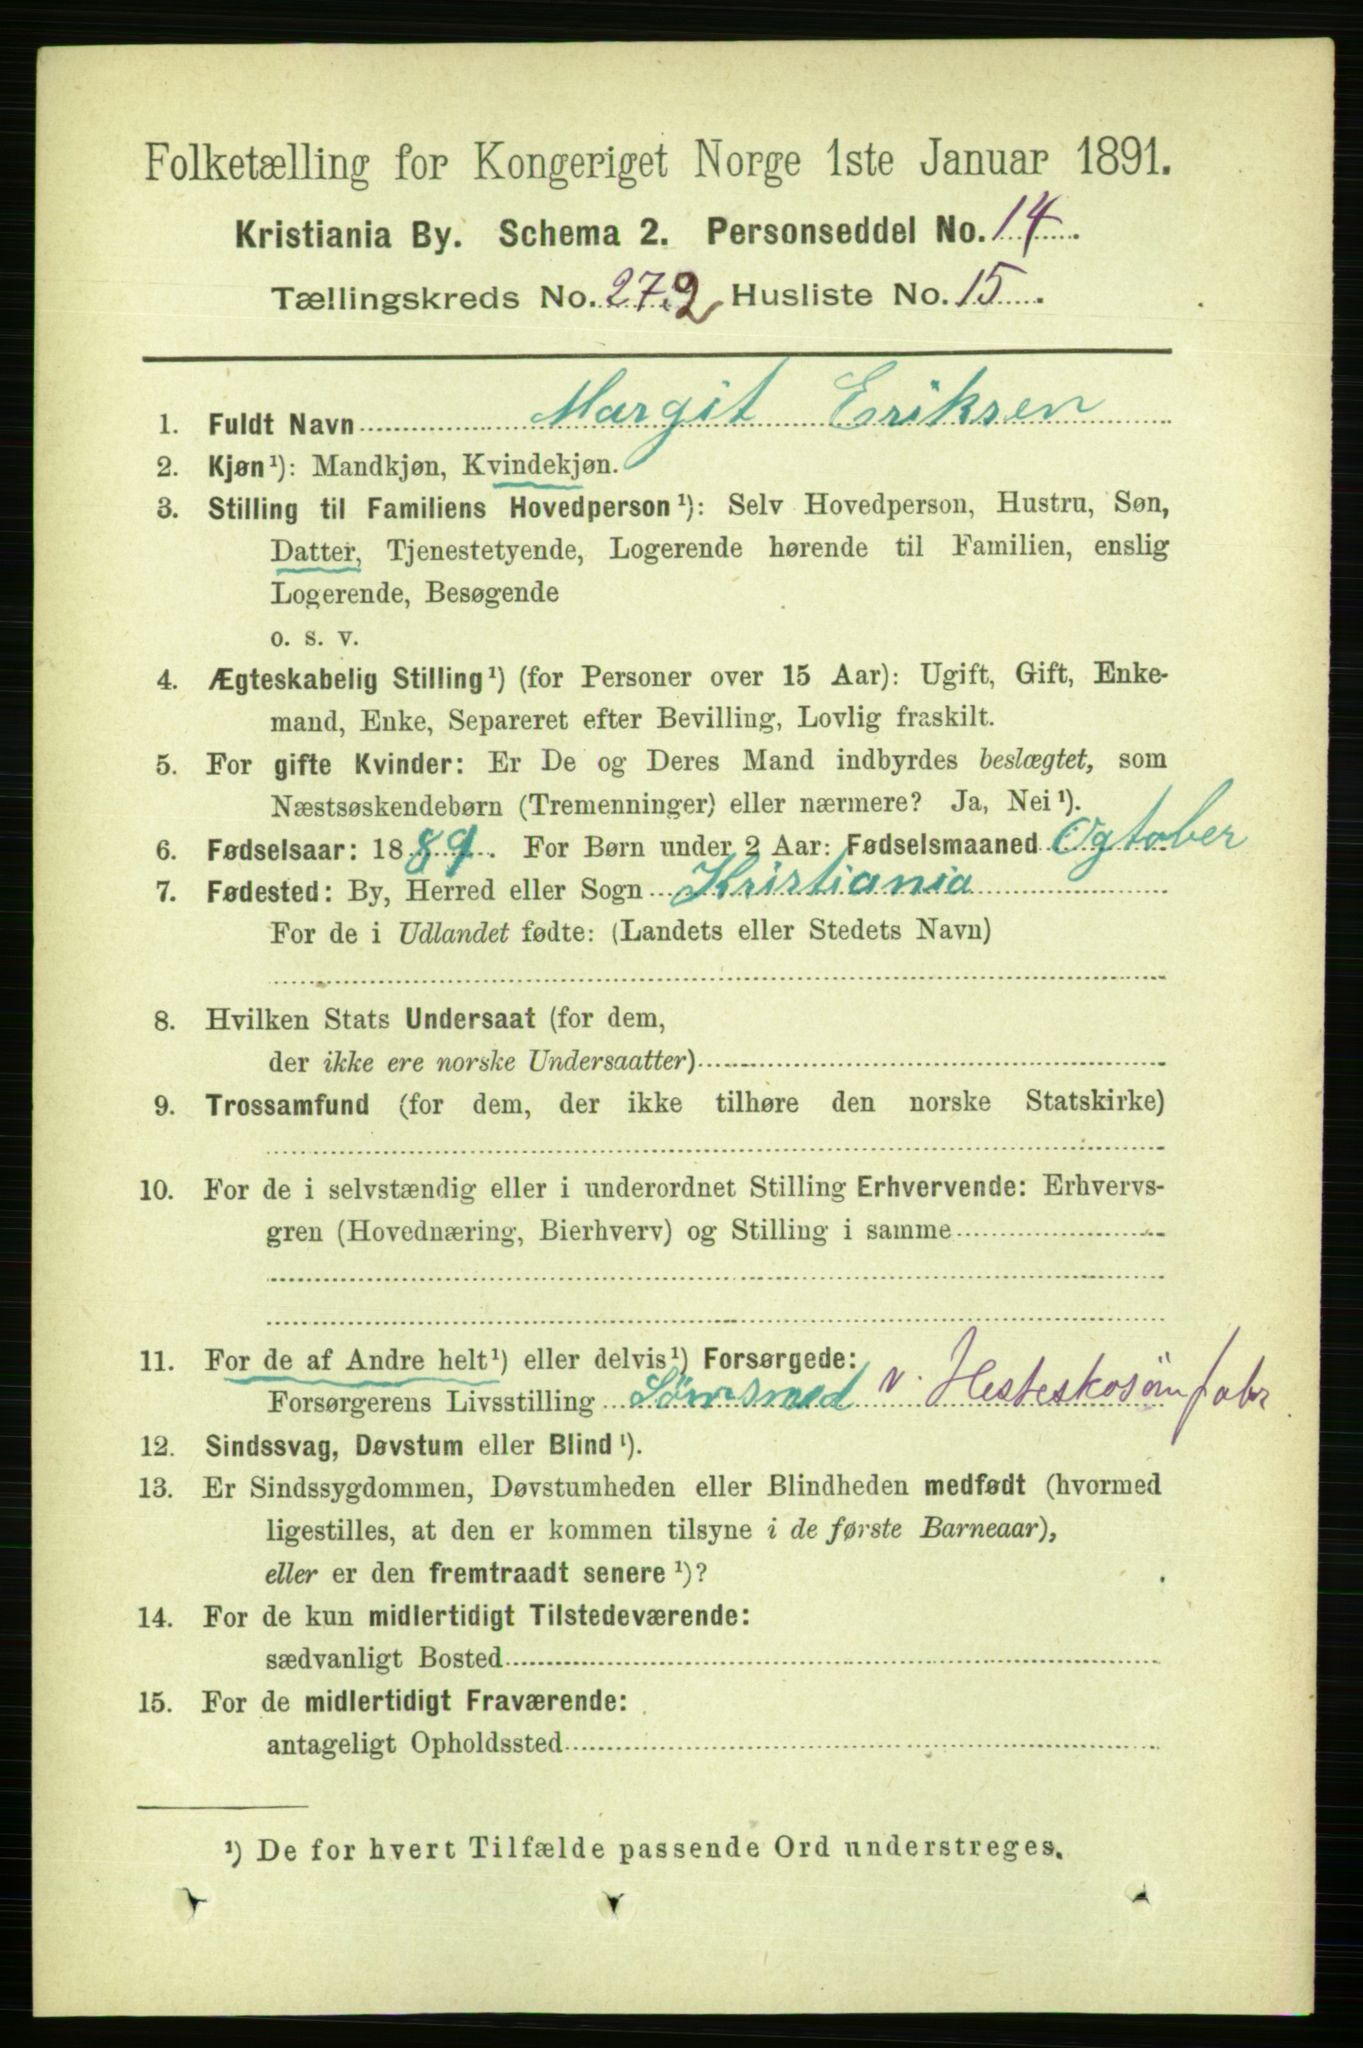 Folketælling for Kongeriget Norge 1ste Januar 1891.
Kristiania By. Schema 2. Personseddel No. 14.
Tællingskreds No. 272 Husliste No. 15.
1. Fuldt Navn Margit Eriksen
2. Kjøn¹): Mandkjøn, Kvindekjøn.
3. Stilling til Familiens Hovedperson¹): Selv Hovedperson, Hustru, Søn,
Datter, Tjenestetyende, Logerende hørende til Familien, enslig
Logerende, Besøgende
o. s. v.
4. Ægteskabelig Stilling¹) (for Personer over 15 Aar): Ugift, Gift, Enke-
mand, Enke, Separeret efter Bevilling, Lovlig fraskilt.
5. For gifte Kvinder: Er De og Deres Mand indbyrdes beslægtet, som
Næstsøskendebørn (Tremenninger) eller nærmere? Ja, Nei¹).
6. Fødselsaar: 1889. For Børn under 2 Aar: Fødselsmaaned Ogtober
7. Fødested: By, Herred eller Sogn Kristiania
For de i Udlandet fødte: (Landets eller Stedets Navn)
8. Hvilken Stats Undersaat (for dem,
der ikke ere norske Undersaatter)
9. Trossamfund (for dem, der ikke tilhøre den norske Statskirke)
10. For de i selvstændig eller i underordnet Stilling Erhvervende: Erhvervs-
gren (Hovednæring, Bierhverv) og Stilling i samme
11. For de af Andre helt¹) eller delvis¹) Forsørgede:
Forsørgerens Livsstilling Sömsmed v. Hesteskosömfabr
12. Sindssvag, Døvstum eller Blind¹).
13. Er Sindssygdommen, Døvstumheden eller Blindheden medfødt (hvormed
ligestilles, at den er kommen tilsyne i de første Barneaar),
eller er den fremtraadt senere¹)?
14. For de kun midlertidigt Tilstedeværende:
sædvanligt Bosted
15. For de midlertidigt Fraværende:
antageligt Opholdssted
¹) De for hvert Tilfælde passende Ord understreges.